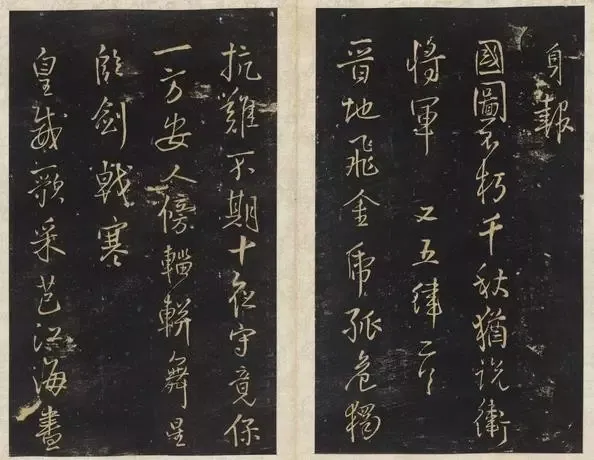 身報
國圖不朽千秋猶說衛
將軍 又五律
晉地飛金虎孤危獨
抗難不期十夜守竟保
一方安人傍輜軿舞星
臨劍戟寒
皇威歌采芑江海畫